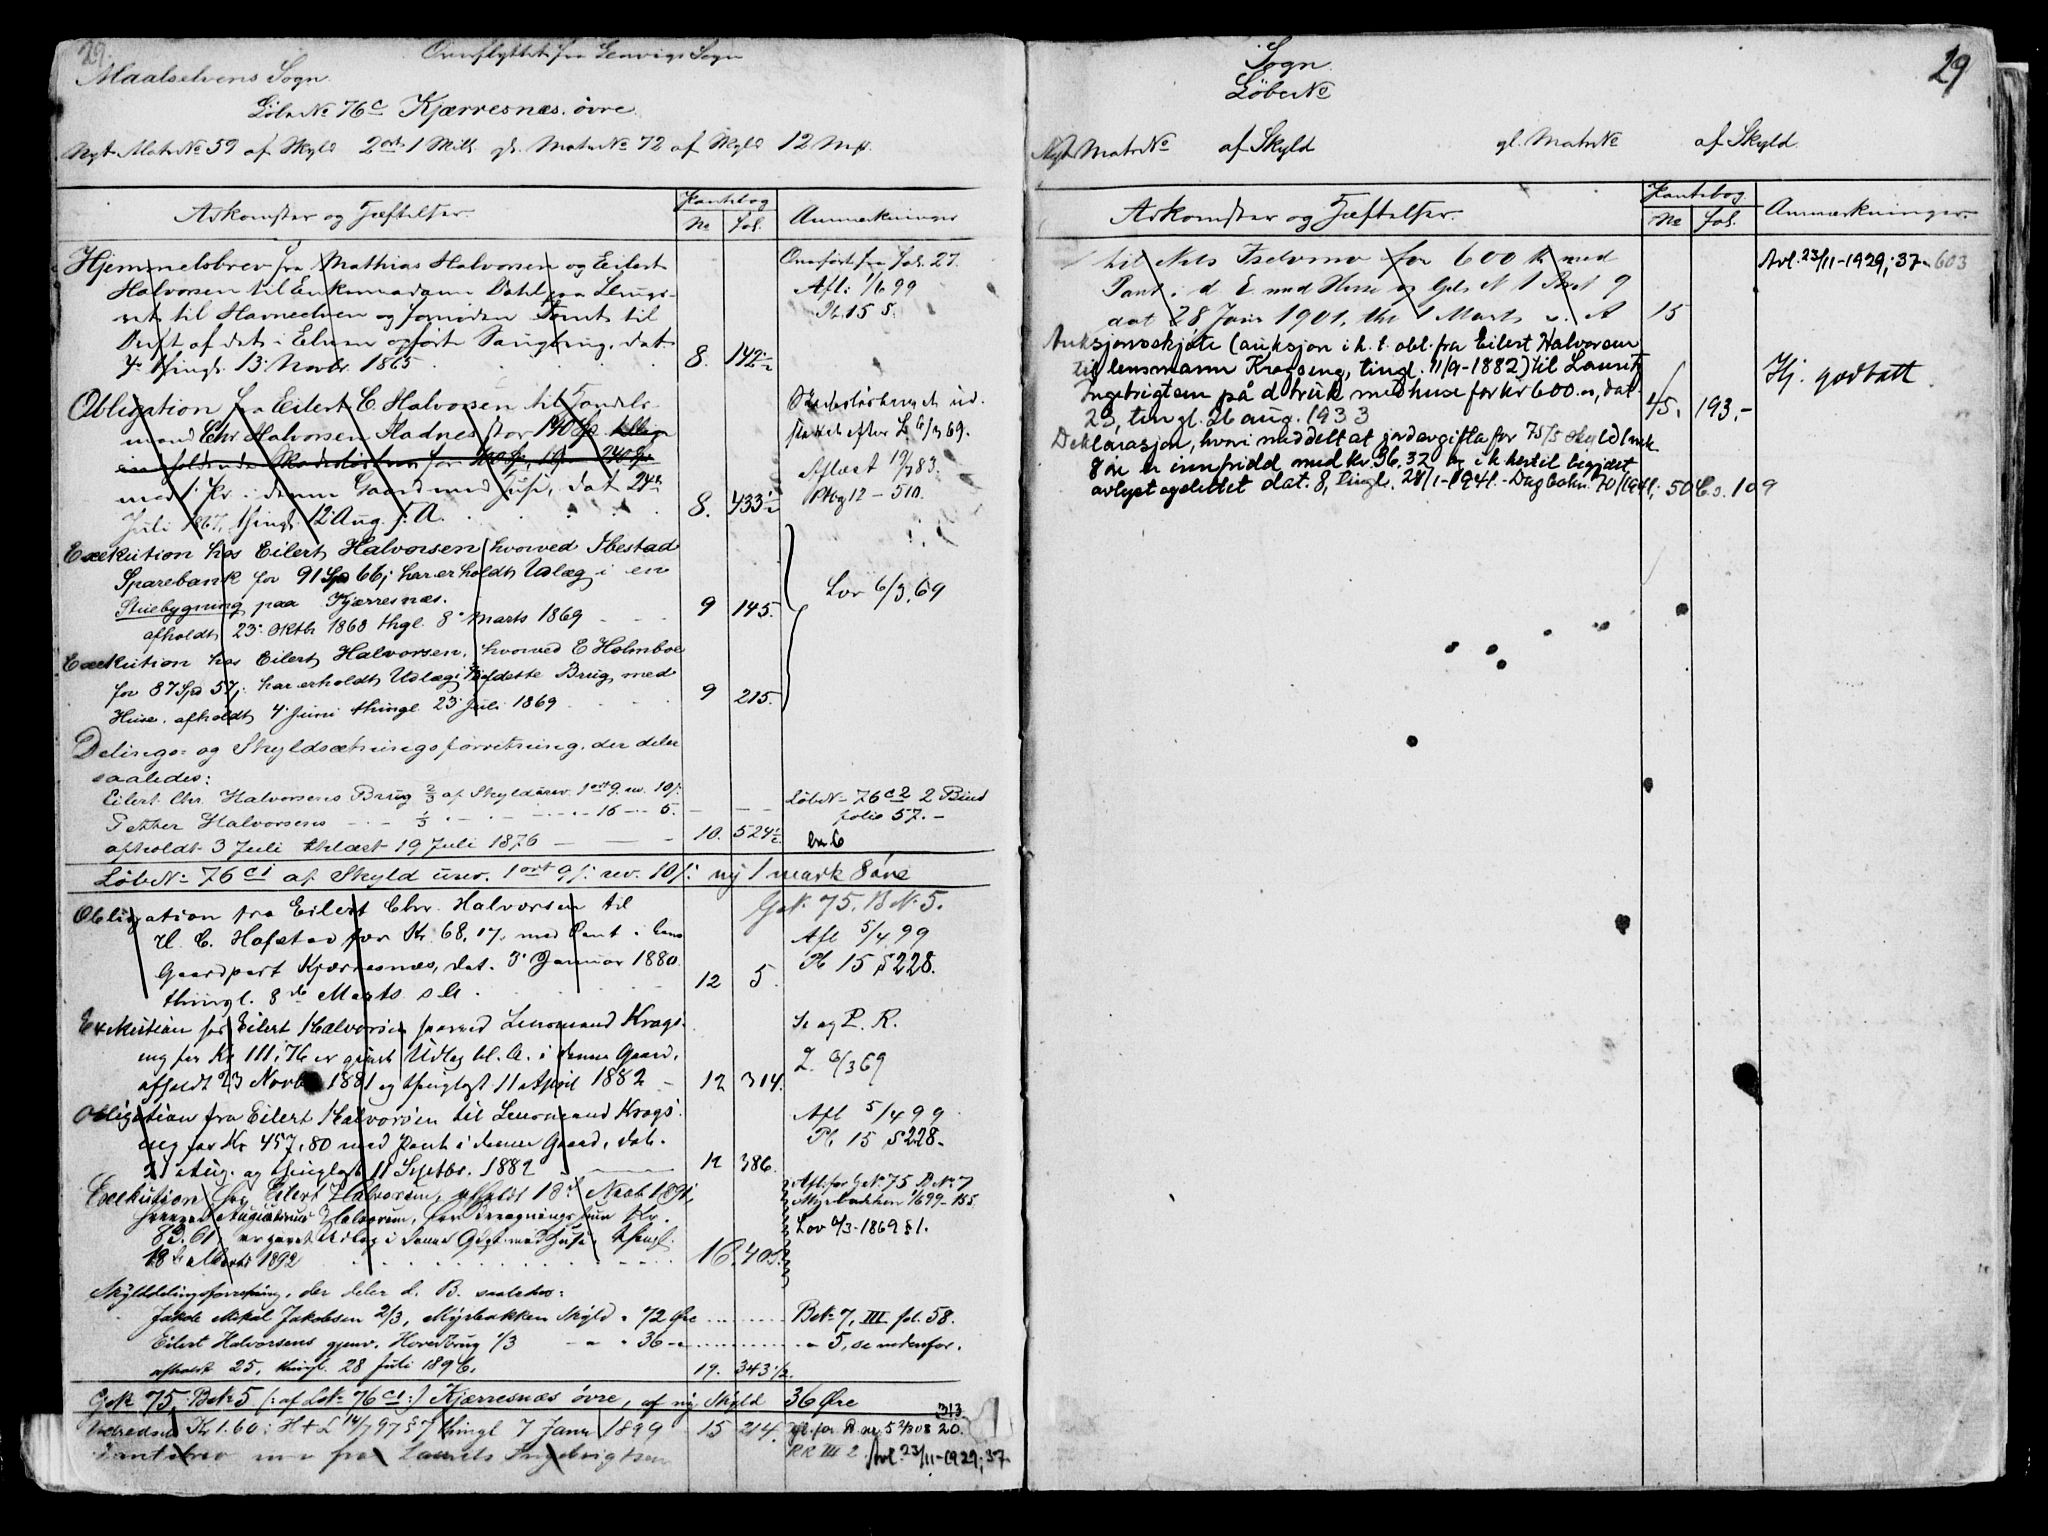 29.
Overflyttet fra Lenvigs Sogn
Maalselvens Sogn
Løbe No 76c Kjærresnæs øvre
Nyt Matr No 59 af Skyld 2 ort 1 Skill. gl. Matr No 72 af Skyld 12 Mk.
Adkomster og Hæftelser.
Pantebog
No fol.
Anmærkninger
Hjemmelsbrev fra Mathias Halvorsen og Eilert
Halvorsen til Enkemadam Dahl paa
til Havneelven og fornøden Tomt til
Drift af det i Elven opførte Saugbrug, dat.
thingl. 13 Novbr. 1865 8. 142
Overført fra fol. 27.
Afl. 1/6 99
Pb. 15 S.
Obligation fra Eilert C. Halvorsen til Handels
mand Chr Halvorsen Stadnes stor 140 Sp
med 1. Pr. i denne Gaard med Huse, dat 24de
Juli 1867, thingl. 12 Aug. s. A. 8. 433
Skadesløsbrevet ud-
slettet efter L 6/3 69.
Aflæst 19/7 83.
Pbog 12 – 510.
Exekution hos Eilert Halvorsen, hvorved Ibestad
Sparebank for 91 Spd 66 har erholdt Udlæg i en
Stuebygning paa Kjærresnæs.
afholdt 23. Oktb 1868 thgl. 8 Marts 1869 9 145.
Lov 6/3 69
Exekution hos Eilert Halvorsen, hvorved E Holmboe
for 87 Spd 57 har erholdt Udlæg i dette Brug med
Huse. afholdt 4 Juni thingl. 23 Juli 1869 9 215.
Delings- og Skyldsætningsforretning, der deler
saaledes:
Eilert Chr. Halvorsens Brug 2/3 af Skyld urev. 1 ort 9. rev. 10/:
Petter Halvorsens – – 1/3 – – – 16 – 5.
afholdt 3 Juli thlæst 19 Juli 1876 – – – 10. 524
Løb No 76 c2 2 Bind
folio 57. –
Løb No 76 c1 af Skyld urev. 1 ort 9/: rev. 10/: ny 1 mark 8 øre
G.No. 75. B No. 5.
Obligation fra Eilert Chr. Halvorsen til
H. C. Hofstad for Kr. 68,17, med Pant i
Gaardpart Kjærresnæs, dat. 3 Januar 1880
thingl. 8de Marts s A. 12 5.
Afl 5/4 99
Pb 15 S 228.
Exekution hos Eilert Halvorsen hvorved Lensmand Krogs-
eng for Kr 111,76 er givet Udlæg bl. A. i denne Gaard,
afholdt 23 Novb 1881 og thinglyst 11 April 1882 – 12 314.
Se og P. R.
L. 6/3 69
Obligation fra Eilert Halvorsen til Lensmand Krogs-
eng for Kr 457,80 med Pant i denne Gaard, dat.
21 Aug. og thinglyst 11 Septbr. 1882 12 386.
Afl 5/4 99
Pb 15 S 228.
Exekution hos Eilert Halvorsen, afholdt 18de Novb 1891,
hvorved Halvorsen, for Kr.
83.61, er givet Udlæg i denne Gd. med Huse, thingl.
18de Marts 1892 16. 405.
Afl. for G.No. 75 B No. 7
Myrbakken 1/6 99 – 155
Lov 6/3 – 1869 § 1.
Skylddelingsforretning, der deler d. B. saaledes:
Jakob Mikal Jakobsen 2/3, Myrbakken Skyld " 72 Øre Bk. 7, III fol. 58.
Eilert Halvorsens gjenv. Hovedbrug 1/3 – " " 36 – " " 5, se nedenfor.
afholdt 25, thingl. 28 Juli 1896. 17. 343 1/2.
G.No 75. B.No 5 (: af L.No 76 c1 :) Kjærresnæs øvre, af ny Skyld 36 Øre
Kr 1.60: H + L 14/7 97 § 7 thingl 7 Janr 1899 15 214. gl. for B. nr 5 2/3 08 20. 313
RR III 2. Avl. 23/11-1929; 37
Pantebrev m. v fra Laurits Ingebrigtsen
29
Sogn.
Løbe No
Nyt Matr No af Skyld gl. Matr No af Skyld.
Adkomster og Hæftelser.
Pantebog
No fol.
Anmærkninger.
til Nils Iselvmo for 600 k med
Pant i d. E. med Huse og Gds N 1 Pret 9
dat 28 Janr 1901, thl 1 Marts s. A 15
Avl. 23/11-1929; 37- 603
Auksjonsskjøte (auksjon i h. t. obl. fra Eilert Halvorsen
til lensmann Krogseng, tingl. 11/9-1882) til Laurits
Ingebrigtsen på d. bruk med huse for kr 600.–, dat.
23, tingl. 26 aug. 1933 45. 193.–
Hj. godtatt
Deklarasjon, hvori meddelt at jordavgifta for 75/5 skyld mk
8 øre er innfridd med kr. 36,32 og i h. hertil begjært
avlyst og slettet dat. 8, tingl. 28/1-1941. - Dagbokn. 70/1941. 50 C. s. 109